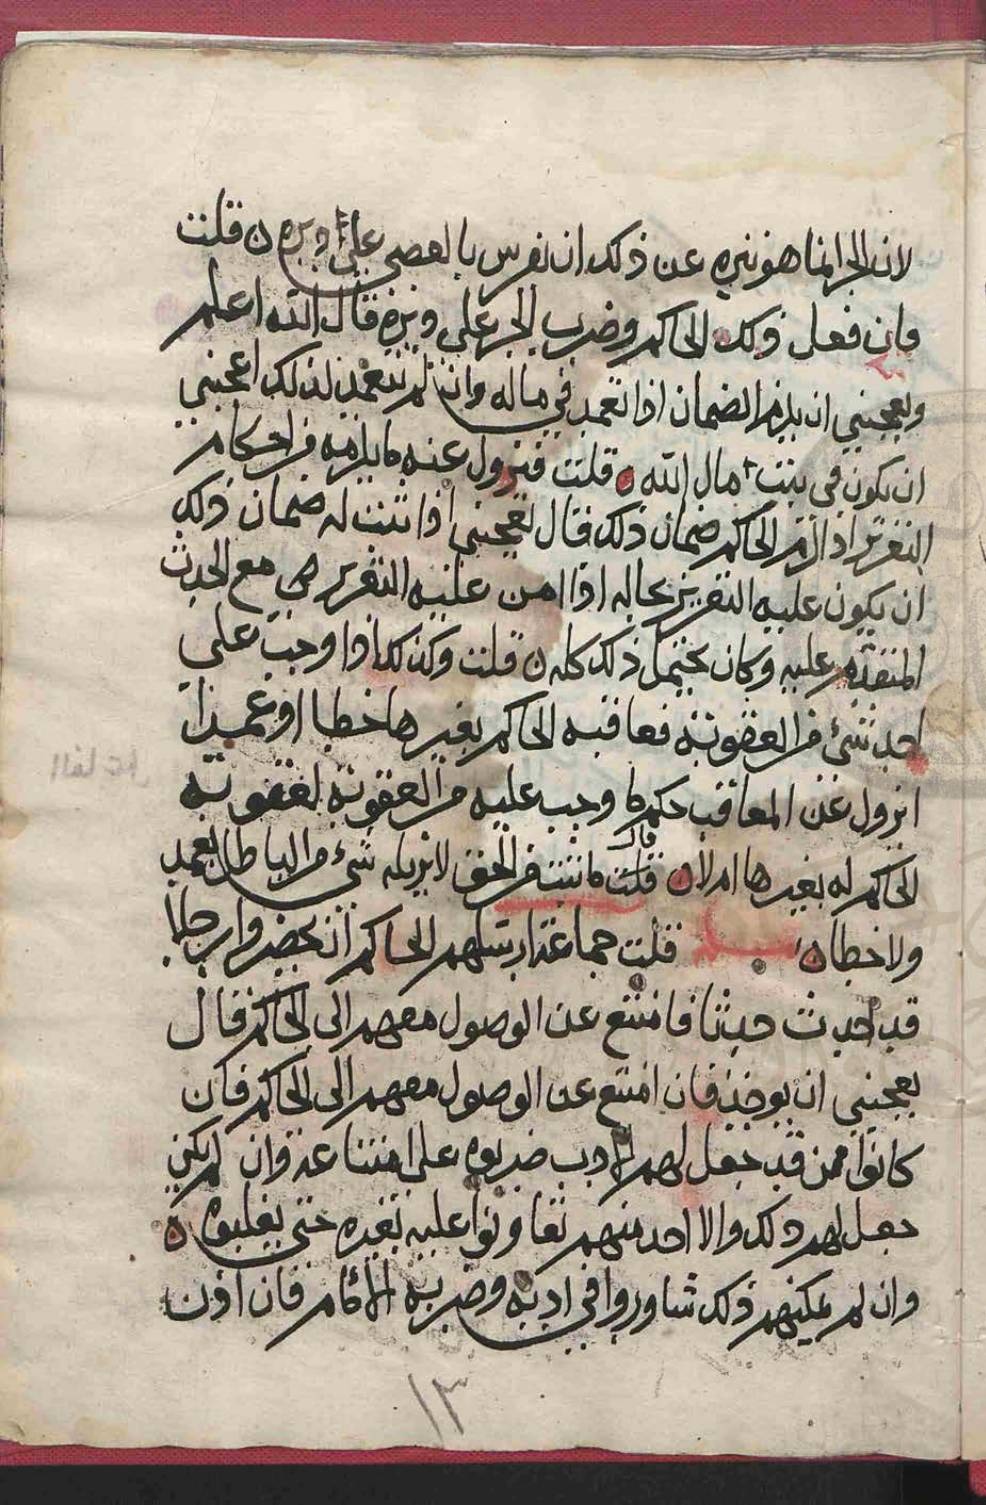 لان الجر انما هو نبره عن ذلك ان نفرس بالعصى على دبره ن قلت
فان فعل ذلك الحاكم وضرب الجر على وبره قال الله اعلم
ويعجبني ان يلزمه الضمان اذا تعمد في ماله وان لم يتعمد لذلك اعجبني
ان يكون في بيت مال الله ن قلت فيزول عنه ما يلزمه من احكام
التعزير اذا لزم الحاكم ضمان ذلك قال يعجبني اذا ثبت له ضمان ذلك
ان يكون عليه التعزير بحاله اذا امن عليه التعزير مع الحدث
المتقدم عليه وكان يحتمل ذلك كله ن قلت وكذلك اذا وجب على
احد شيء من العقوبة فعاقبه الحاكم بغيرها خطا او عمدا
ايزول عن المعاقب حكم ما وجب عليه من العقوبة لعقوبة
الحاكم له بغيرها ام لا ن قلت قال ما ثبت من الحق لا يزيله شيء من الباطل بعمد
ولا خطا ن مسئلة قلت جماعة ارسلهم الحاكم ان يحضروا رجلا
قد احدث حدثا فامتنع عن الوصول معهم الى الحاكم قال
يعجبني ان يوخذ فان امتنع عن الوصول معهم الى الحاكم فان
كانوا ممن قد جعل لهم الادب ضربوه على امتناعه وان لم يكن
جعل لهم ذلك والا احد منهم تعاونوا عليه بغيره حتى يغلبوه ن
وان لم يمكنهم ذلك شاوروا في ادبه وضربه الامام فان اذن
١٣